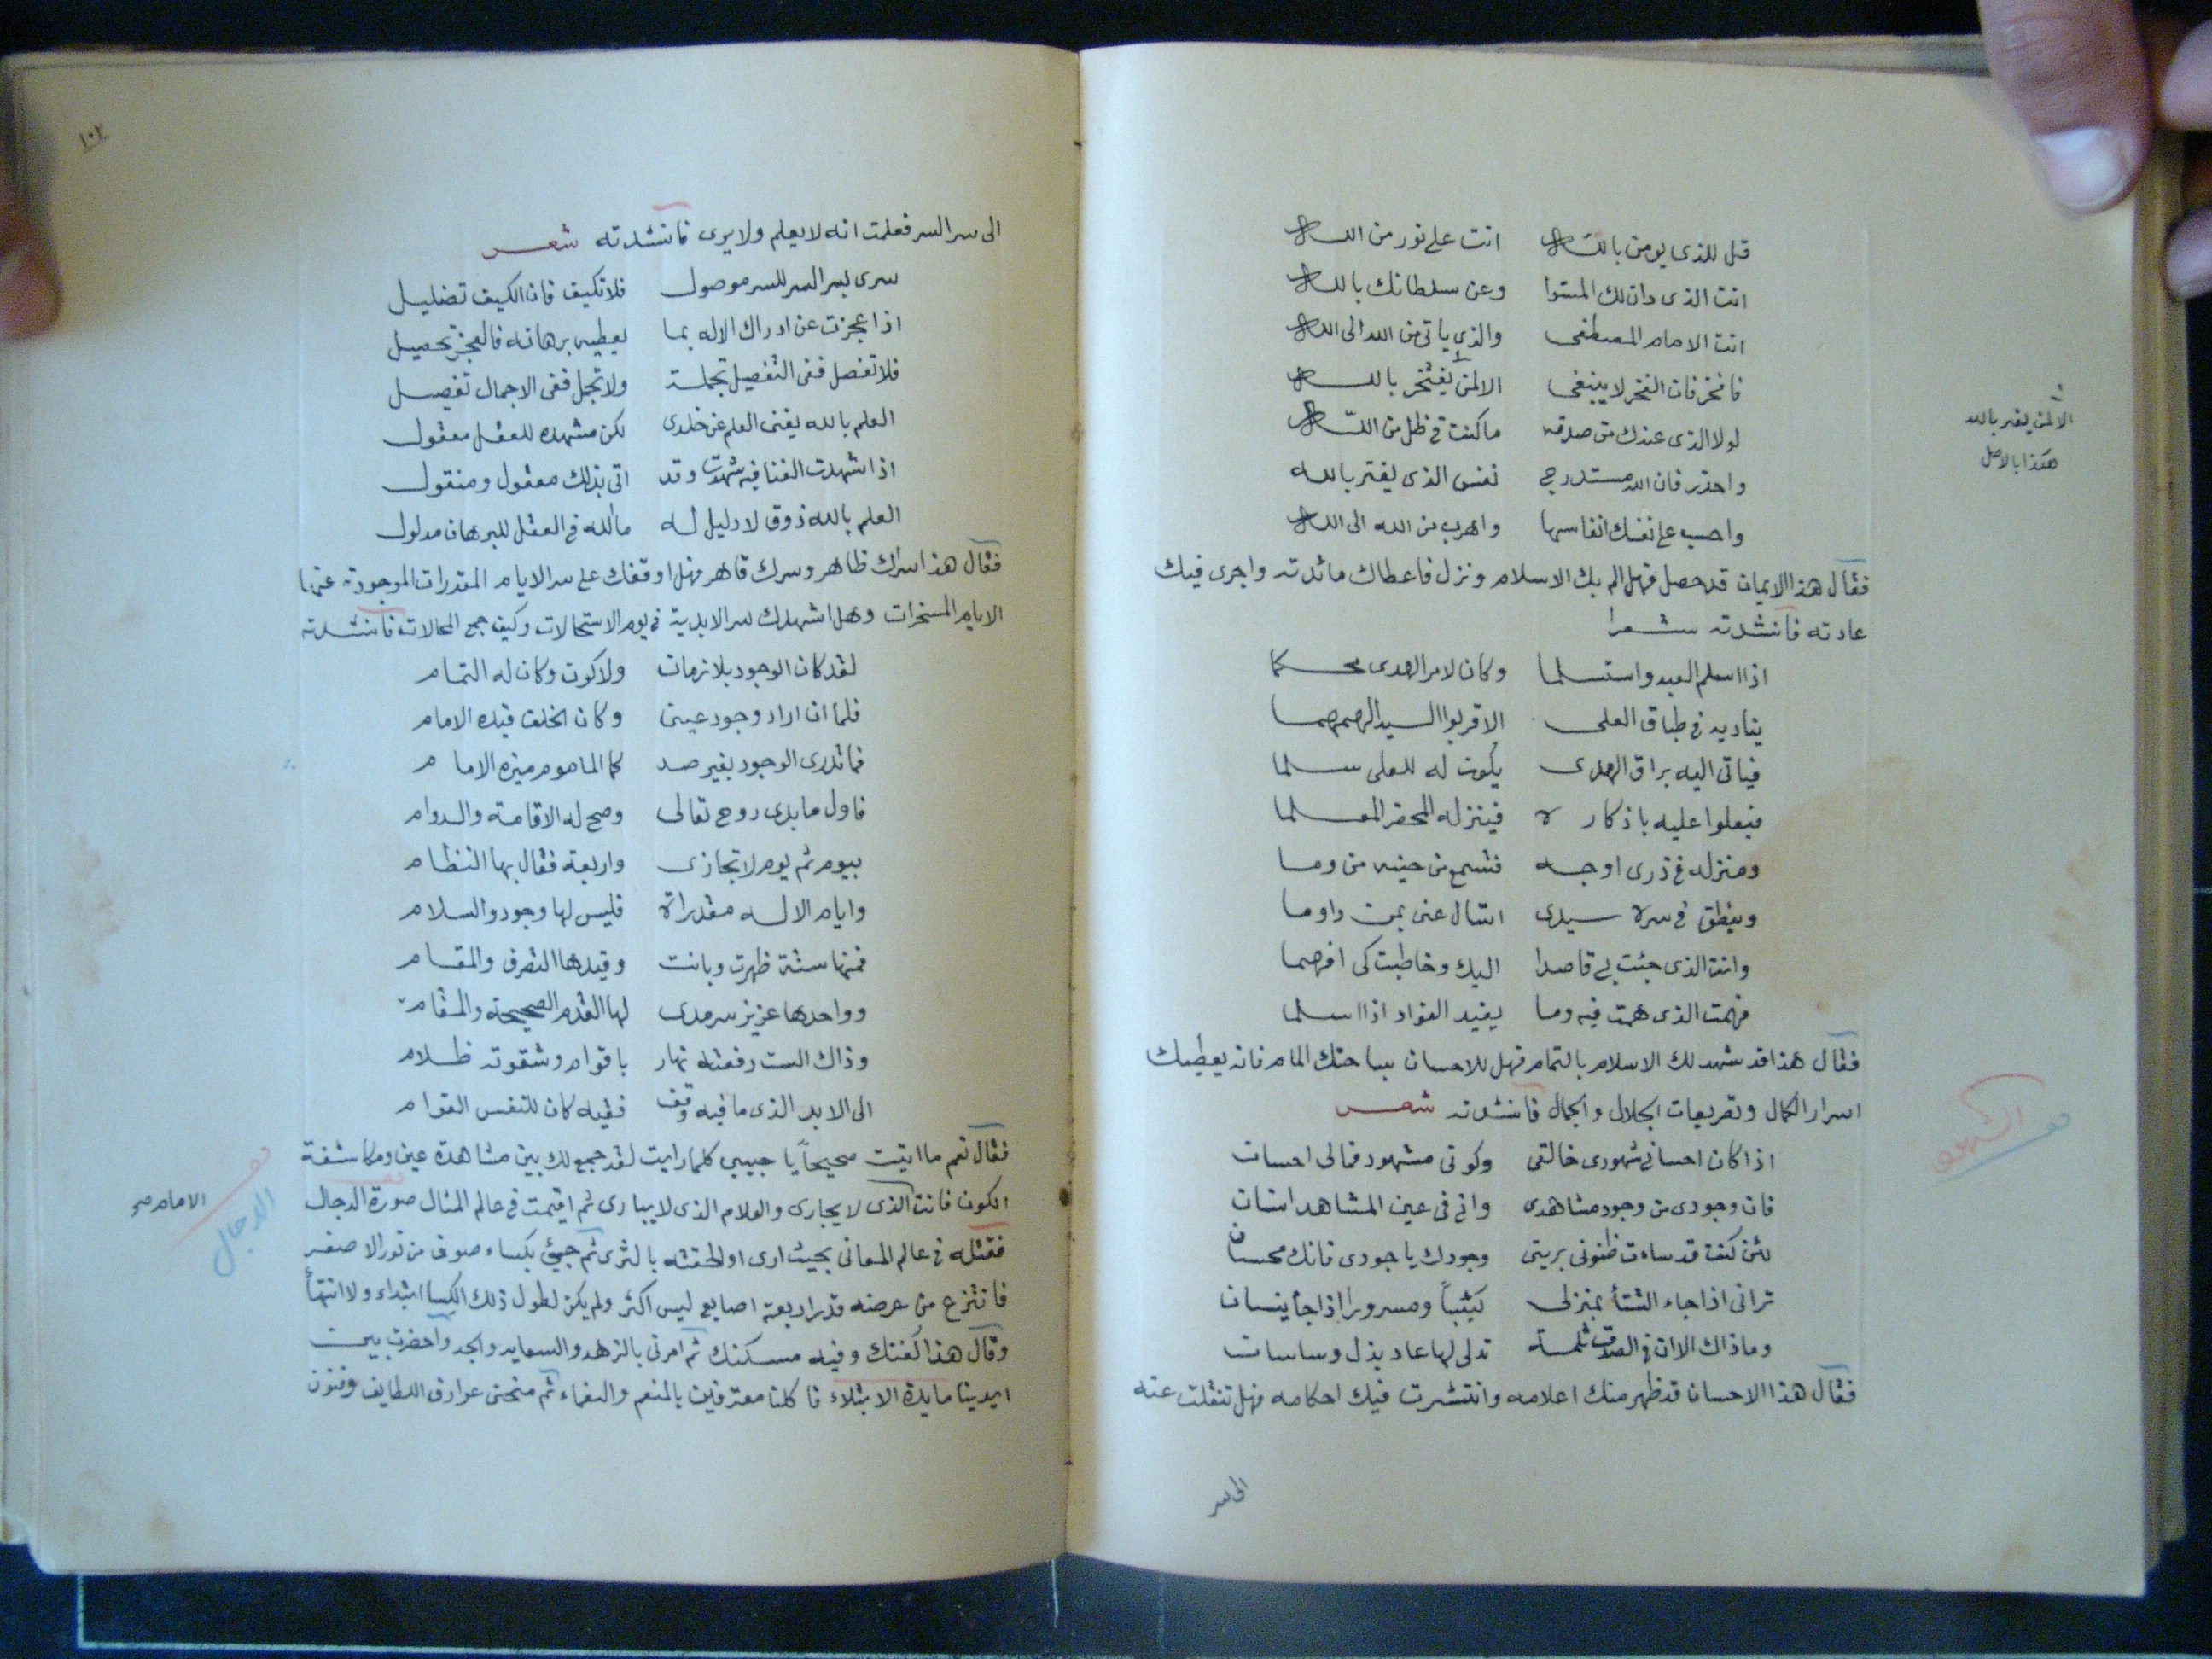 قل للذى يومن بالله انت على نور من الله
انت الذى دان لك المستوا وعن سلطانك بالله
انت الامام المصطفى والذى ياتى من الله الى الله
فافخر فان الفخر لا ينبغى الا لمن يفتخر بالله
لولا الذى عندك من صدقه ما كنت فى ظل من الله
واحذر فان الله مستدرج نفس الذى يفتر بالله
واحسب على نفسك انفاسها واهرب من الله الى الله
الا لمن يفتر بالله
هكذا بالاصل
فقال هذا الايمان قد حصل فهل الم بك الاسلام ونزل فاعطاك مائدته واجرى فيك
عادته فانشدته شعرا
اذا اسلم العبد واستسلما وكان لامر الهدى محكما
يناديه فى طباق العلى الا قربوا السيد
فياتى اليه براق الهدى يكون له للعلى سلما
فيعلوا عليه باذكاره فينزله المحضر المعلما
ومنزله فى ذرى اوجه فتسمع من حينه من وما
وينطق فى سره سيدى اتسال عنى بمن داوما
وانت الذى جئت بى قاصدا اليك وخاطبت كى افهما
فهمت الذى همت فيه وما يفيد الفواد اذا اسلما
فقال هذا قد شهد لك الاسلام بالتمام فهل للاحسان بساحتك المام فانه يعطيك
اسرار الكمال وتصريفات الجلال والجمال فانشدته شعر
اذا كان احسانى شهودى خالقى وكونى مشهود فمالى احسان
فان وجودى من وجود مشاهدى وانى فى عين المشاهد انسان
لئن كنت قد ساءت ظنونى بريتى وجودك يا جودى فانك محسان
ترانى اذا جاء الشتأ بمنزلى كئيباً ومسرورا اذا جأ نيسان
وما ذاك الا ان فى الصدق ثلمة تدلى لها عاد بذل وساسان
فقال هذا الاحسان قد ظهر منك اعلامه وانتشرت فيك احكامه فهل تنقلت عنه
الى سر
١٠٢
الى سر السر فعلمت انه لا يعلم ولا يرى فانشدته شعر
سرى بسر السر للسر موصول فلا تكيف فان الكيف تضليل
اذا عجزت عن ادراك الاله بما يعطيه برهانه فالعجز تحصيل
فلا تفصل ففى التفصيل تجملة ولا تجمل ففى الاجمال تفصيل
العلم بالله يفنى العلم عن خلدى لكن مشهده للعقل معقول
اذا شهدت الفنا فيه شهدت وقد اتى بذلك معقول ومنقول
العلم بالله ذوق لا دليل له ما لله فى العقل للبرهان مدلول
فقال هذا سرك ظاهر وسرك قاهر فهل اوقفك على سر الايام المقدرات الموجودة عنها
الايام المسخرات وهل اشهدك سر الابدية فى يوم الاستحالات وكيف جمع المحالات فانشدته
لقد كان الوجود بلا زمان ولا كون وكان له التمام
فلما ان اراد وجود عينى وكان الخلف قيده الامام
فما تدرى الوجود بغير ضد كما الماموم ميزه الامام
فاول ما بدى روح تعالى وصح له الاقامة والدوام
بيوم ثم يوم لا تجازى واربعة فقال بها النظام
وايام الاله مقدراة فليس لها وجود والسلام
فمنها ستة ظهرت وبانت وقيدها التصرف والمقام
وواحدها عزيز سرمدى لها القدم الصحيحة والمقام
وذاك الست رفعته نهار باقوام وشقوته ظلام
الى الابد الذى ما فيه وقف ففيه كان للنفس القوام
فقال نعم ما اتيت صحيحاً يا حبيبى كلما رايت لقد جمع لك بين مشاهدة عين ومكاشفة
الكون فانت الذى لا يجارى والعلام الذى لا يبارى ثم اقيمت فى عالم المثال صورة الدجال
فقتله فى عالم المعانى بحيث ارى والحقته بالثرى ثم جيئ بكساء صوف من نور الاصفر
فانتزع من عرضه قدر اربعة اصابع ليس اكثر ولم يكن لطول ذلك الكسا ابتداء ولا انتهأ
وقال هذا كفنك وفيه مسكنك ثم امرنى بالزهد والسعايه والجد واحضرت بين
ايدينا مايدة الابتلاء فاكلنا معترفين بالمنعم والنعماء ثم منحنى عوارف اللطايف وفنون
الامام صح
الدجال